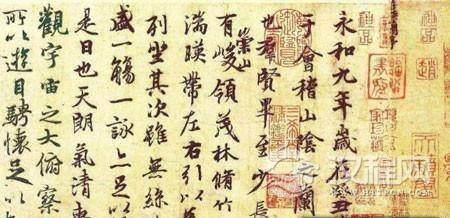 永和九年歲在癸丑
于會稽山陰之蘭
也羣賢畢至少長
有崇山峻領茂林脩竹
湍暎帶左右引以為
列坐其次雖無絲
盛一觴一詠亦足以
是日也天朗氣清惠
觀宇宙之大俯察
所以遊目騁懷足以
汉程网